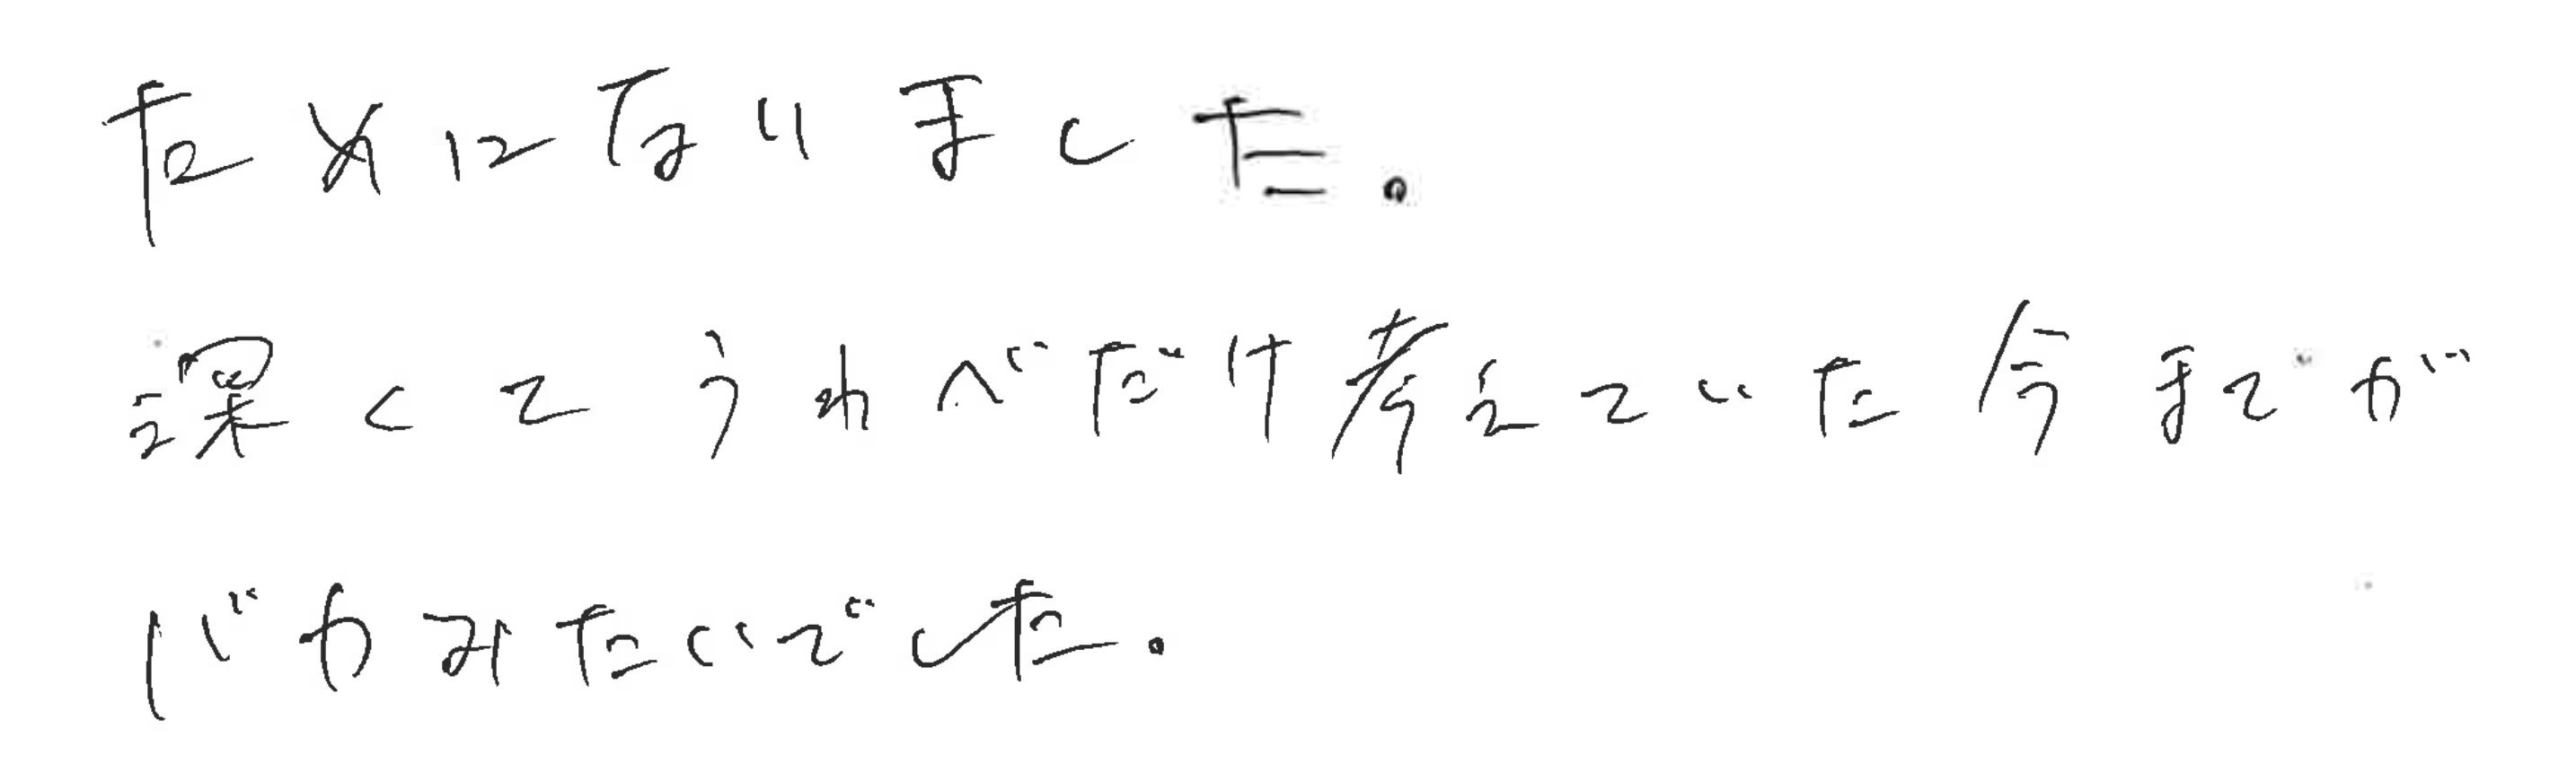 ためになりました。
深くてうわべだけ考えていた今までが
バカみたいでした.